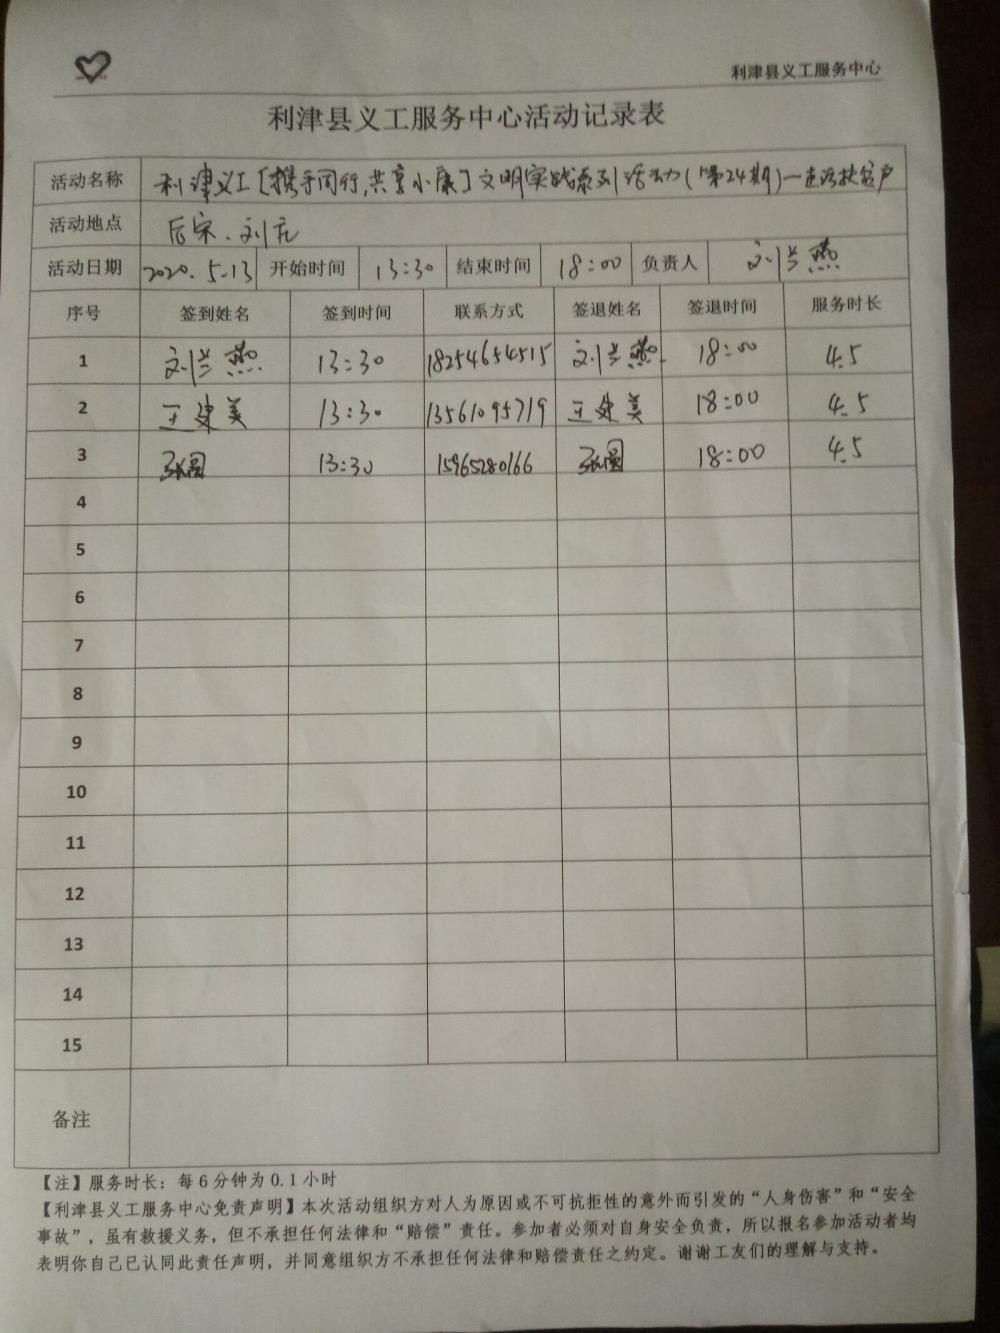 利津县义工服务中心
利津县义工服务中心活动记录表
活动名称 利津义工[携手同行,共享小康]文明实践系列活动(第24期)—走访扶贫户
活动地点 后宋、刘
活动日期 2020.5.13 开始时间 13:30 结束时间 18:00 负责人 刘兰燕
序号 签到姓名 签到时间 联系方式 签退姓名 签退时间 服务时长
1 刘兰燕 13:30 18254654515 刘兰燕 18:00 4.5
2 王建美 13:30 13561095719 王建美 18:00 4.5
3 张圆 13:30 15965280166 张圆 18:00 4.5
4
5
6
7
8
9
10
11
12
13
14
15
备注
【注】服务时长：每6分钟为0.1小时
【利津县义工服务中心免责声明】本次活动组织方对人为原因或不可抗拒性的意外而引发的“人身伤害”和“安全
事故”，虽有救援义务，但不承担任何法律和“赔偿”责任。参加者必须对自身安全负责，所以报名参加活动者均
表明你自己已认同此责任声明，并同意组织方不承担任何法律和赔偿责任之约定。谢谢工友们的理解与支持。